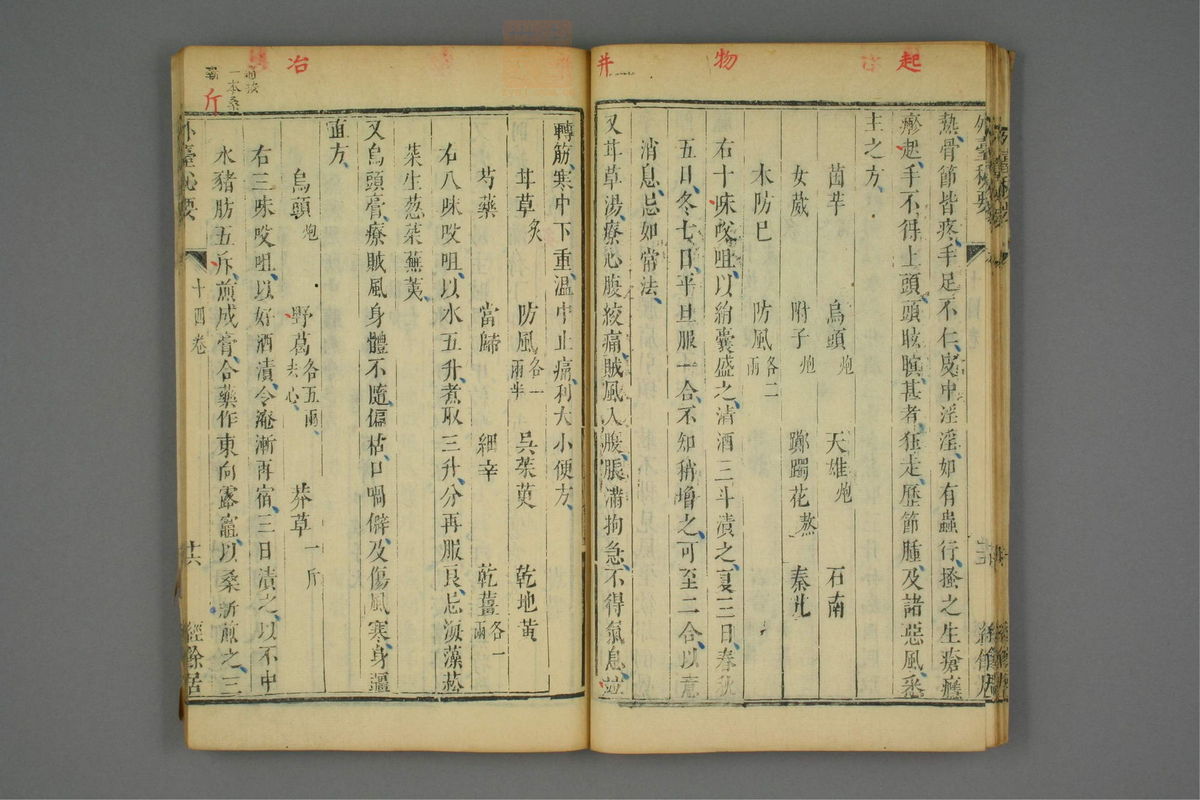 起
物
井
熱骨節皆疼手足不仁皮中淫淫如有蟲行搔之生瘡癮
疹起手不得上頭頭眩瞑甚者狂走歷節腫及諸惡風悉
主之方
茵芋 烏頭炮 天雄炮 石南
女葳 附子炮 躑躅花蒸 秦艽
木防巳 防風各二兩
右十味㕮咀以絹囊盛之清酒三斗漬之夏三日春秋
五日冬七日平旦服一合不知稍增之可至二合以意
消息忌如常法
又甘草湯療心腹絞痛賊風入腹脹滿拘急不得氣息並
轉筋寒中下重溫中止痛利大小便方
甘草炙 防風各一兩半 吳茱萸 乾地黃
芍藥 當歸 細辛 乾薑各一兩
右八味㕮咀以水五升煮取三升分再服良忌海藻菘
菜生葱菜蕪荑
又烏頭膏療賊風身體不隨偏枯口喎僻及傷風寒身彊
直方
烏頭炮 野葛各五兩去心 莽草一斤
右三味㕮咀以好酒漬令淹漸再宿三日漬之以不中
水豬肪五斤煎成膏合藥作東向露竈以桑薪煎之三
外臺秘要 十四卷 十六 經餘居
冶
一本桑
斤